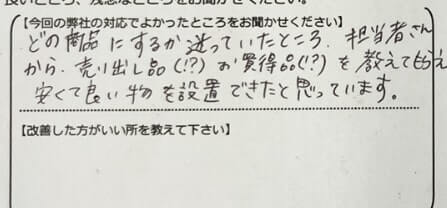 良いところ、残念なところをお聞かせください。
【今回の弊社の対応でよかったところをお聞かせください】
どの商品にするか迷っていたところ、担当者さん
から、売り出し品(!?)お買得品(!?)を教えてもらえ
安くて良い物を設置できたと思っています。
【改善した方がいい所を教えて下さい】